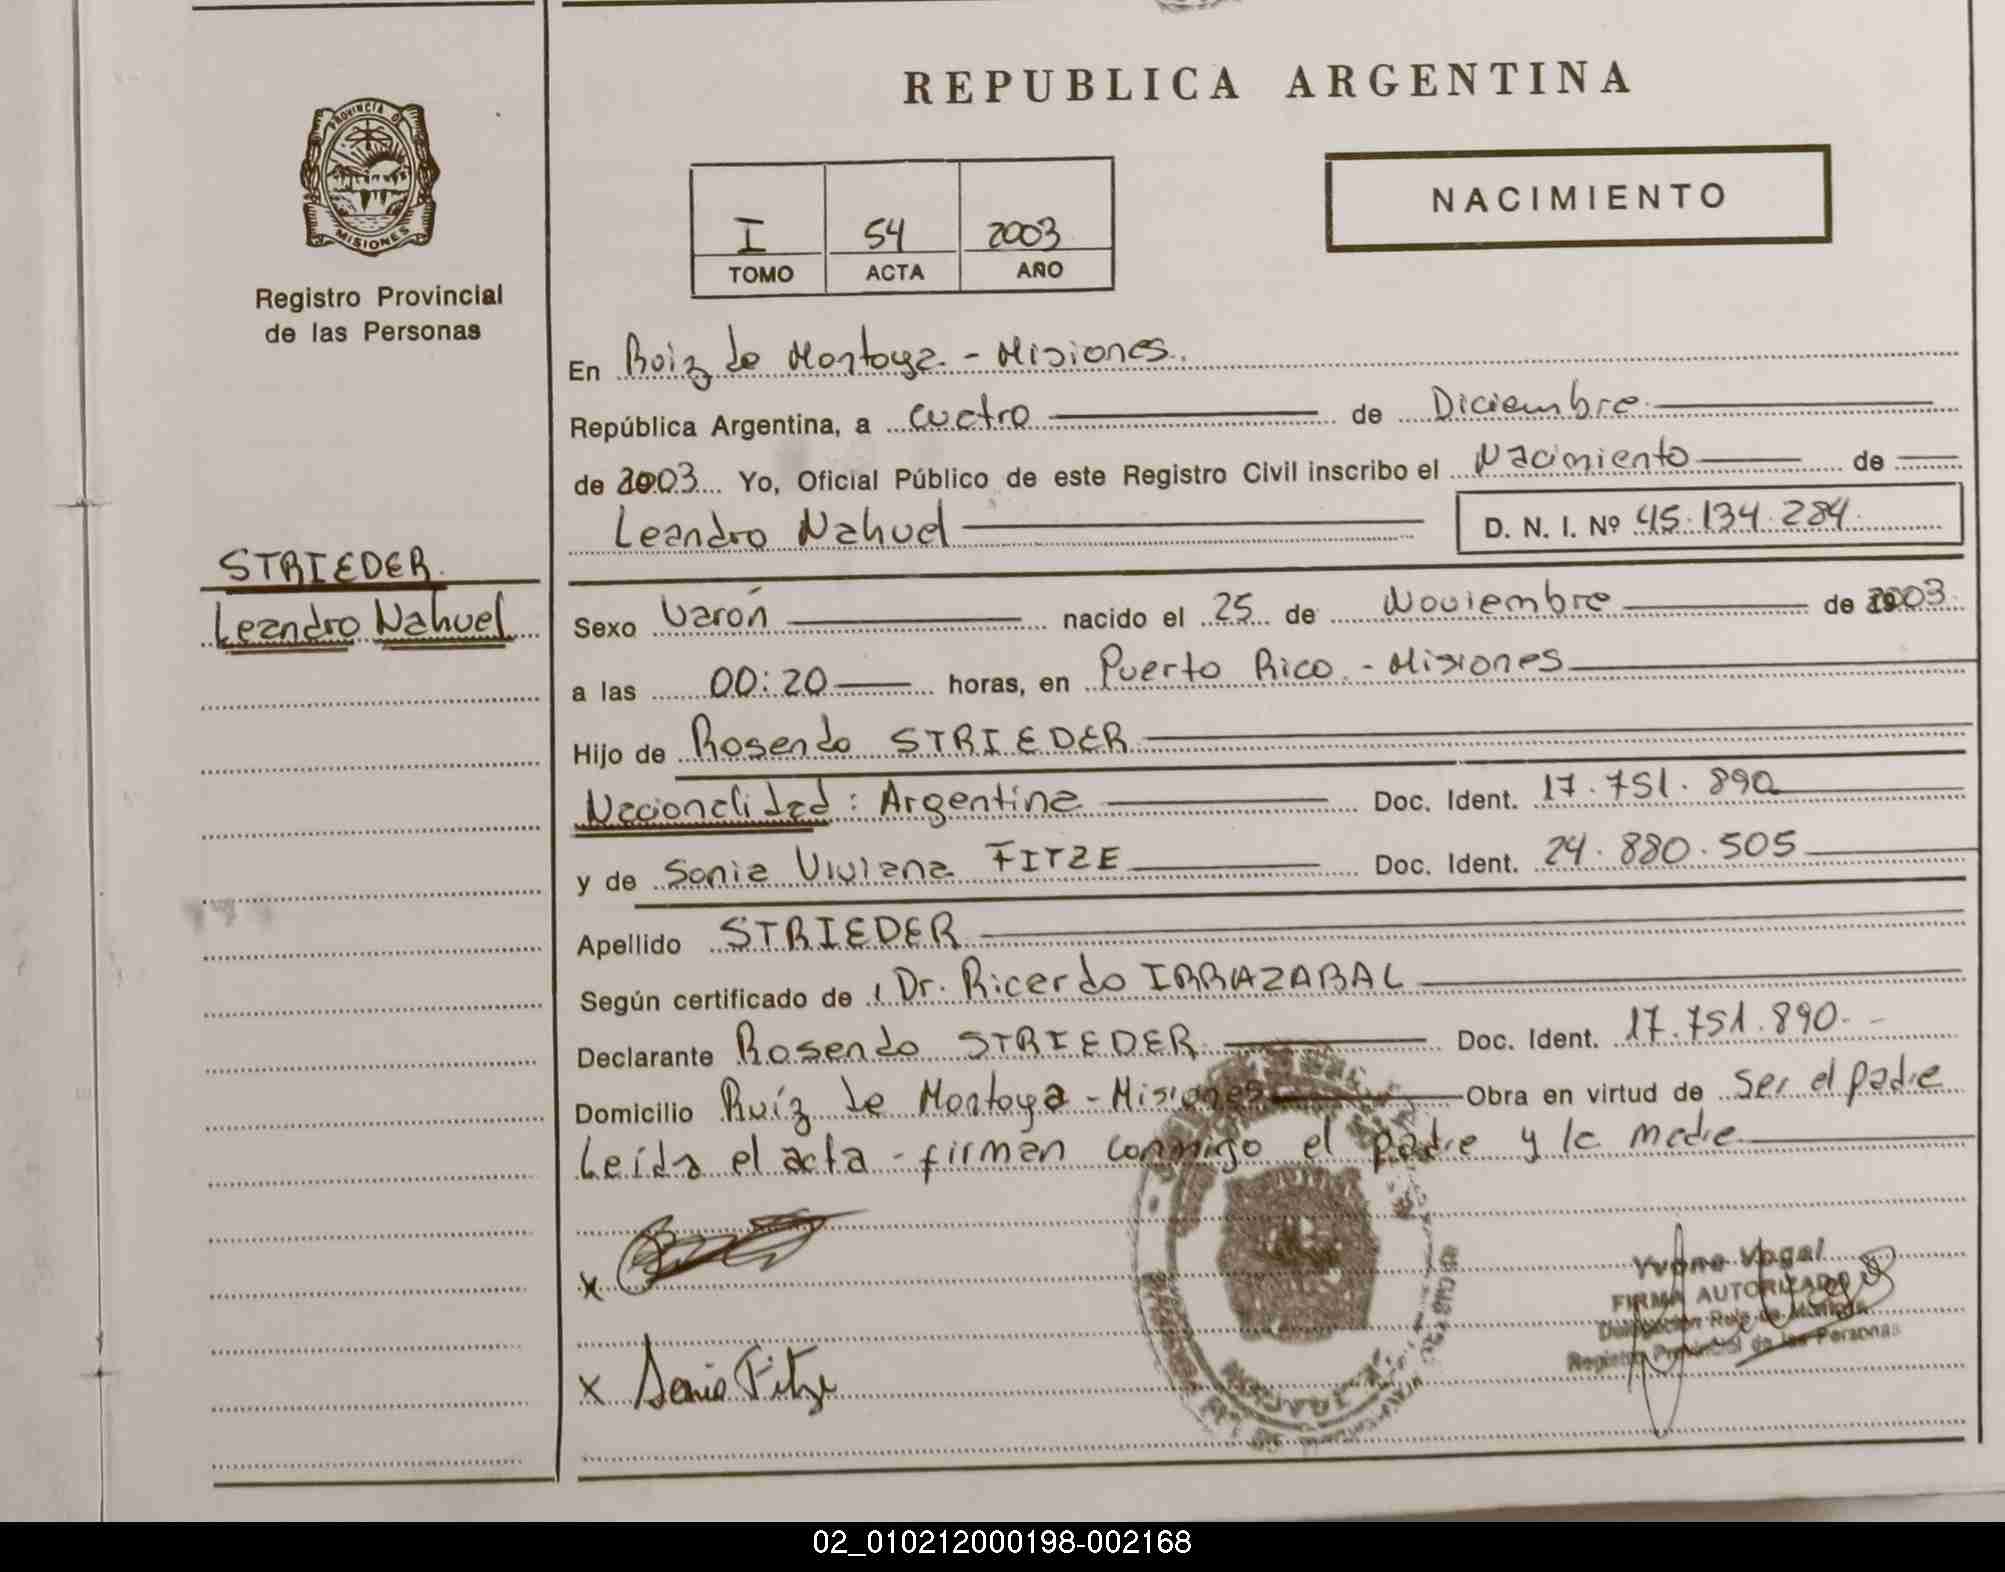 REPUBLICA ARGENTINA
PROVINCIA D
MISIONES
Registro Provincial
de las Personas
I 54 2003
TOMO ACTA AÑO
NACIMIENTO
STRIEDER
Leandro Nahuel
En Ruiz de Montoya - Misiones.
República Argentina, a cuatro de Diciembre
de 2003 Yo, Oficial Público de este Registro Civil inscribo el Nacimiento de
Leandro Nahuel D. N. I. Nº 45.134.284
Sexo Varón nacido el 25 de Noviembre de 2003
a las 00:20 horas, en Puerto Rico - Misiones
Hijo de Rosendo STRIEDER
Nacionalidad: Argentina Doc. Ident. 17.751.890
y de Sonia Viviana FITZE Doc. Ident. 24.880.505
Apellido STRIEDER
Según certificado de Dr. Ricardo IRRAZABAL
Declarante Rosendo STRIEDER Doc. Ident. 17.751.890
Domicilio Ruíz de Montoya - Misiones Obra en virtud de Ser el padre
Leída el acta - firman conmigo el padre y la madre
x
x Sonia Fitze
Yvone Vogel
FIRMA AUTORIZADA
Delegación Ruiz de Montoya
Registro Provincial de las Personas
02_010212000198-002168